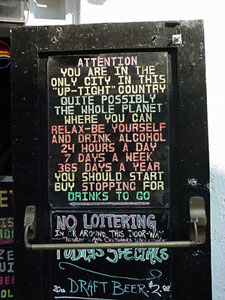 ATTENTION
YOU ARE IN THE
ONLY CITY IN THIS
"UP-TIGHT" COUNTRY
QUITE POSSIBLY
THE WHOLE PLANET
WHERE YOU CAN
RELAX-BE YOURSELF
AND DRINK ALCOHOL
24 HOURS A DAY
7 DAYS A WEEK
365 DAYS A YEAR
YOU SHOULD START
BUY STOPPING FOR
DRINKS TO GO
NO LOITTERING
AROUND THIS
TODAYS SPECIALS
DRAFT BEER